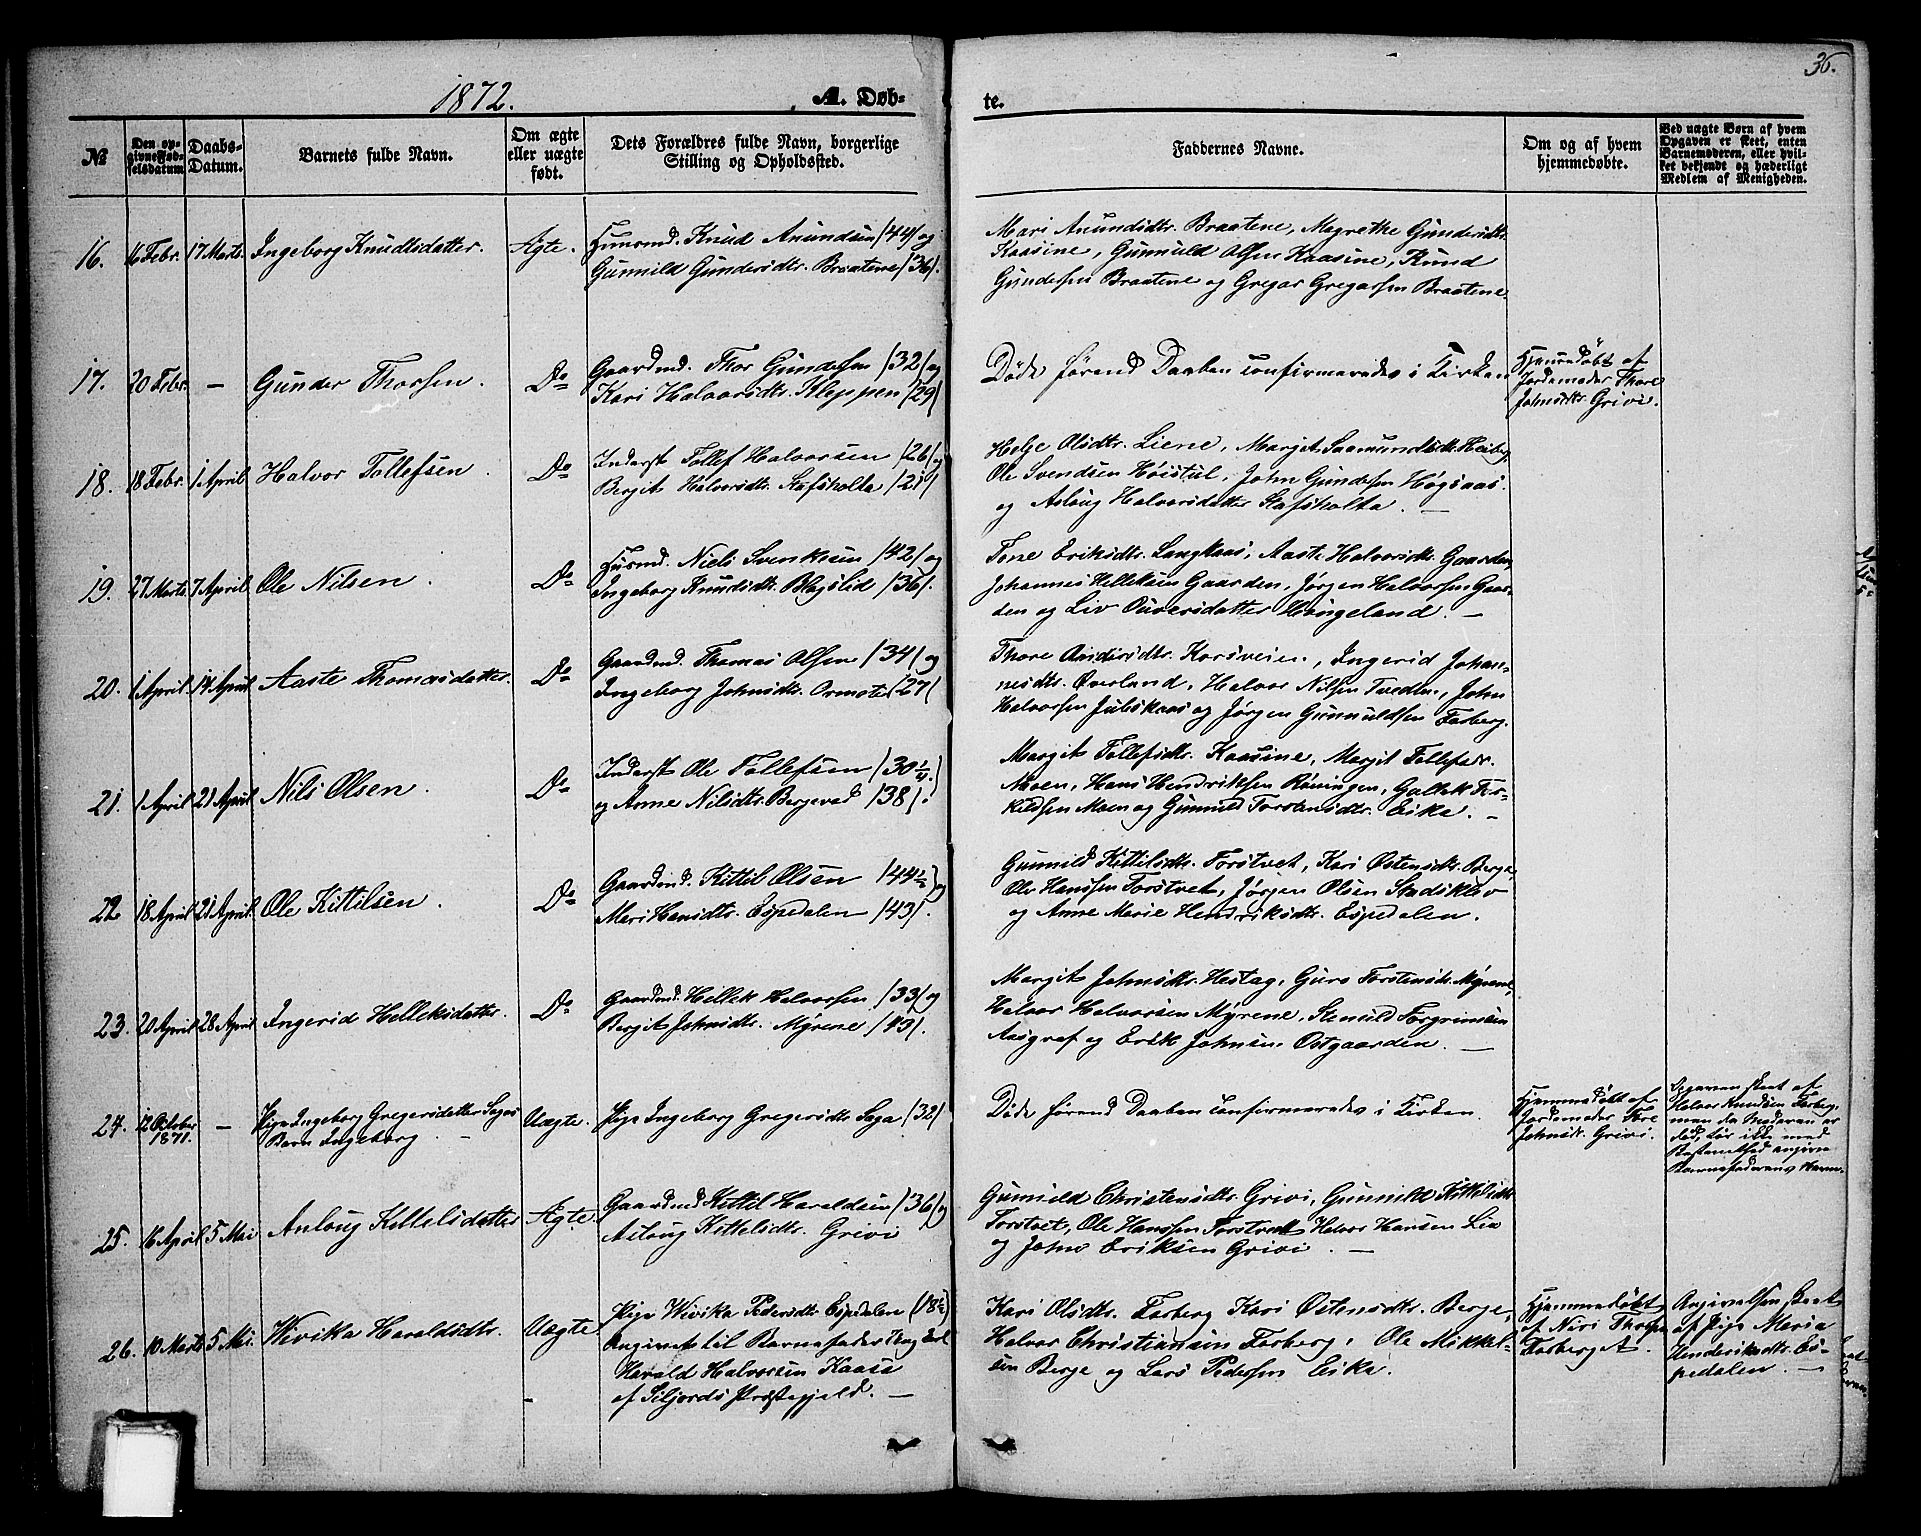 36.
1872.
A. Døb-
te.
№
Den op-
givne Fød-
selsdatum
Daabs-
Datum.
Barnets fulde Navn.
Om ægte
eller uægte
født.
Dets Forældres fulde Navn, borgerlige
Stilling og Opholdssted.
Faddernes Navne.
Om og af hvem
hjemmedøbte.
Ved uægte Børn af hvem
Opgaven er skeet, enten
Barnemoderen, eller hvil-
ket bekjendt og hæderligt
Medlem af Menigheden.
16. 16 Febr. 17 Marts. Ingeborg Knudsdatter. Ægte.
Husmd. Knud Anundsen /44/ og
Gunnild Gundersdtr. Braatene /36/.
Mari Anundsdtr. Braatene, Megrethe Gundersdtr.
Kaasine, Gunnuld Olsen Kaasine, Knud
Gundersen Braatene og Gregar Gregarsen Braatene
17. 20 Febr. — Gunder Thorsen. Do
Gaardmd. Thor Gundersen /32/ og
Kari Halvorsdtr. Kleppen /29/
Døde førend Daaben confirmeredes i Kirken
Hjemmedøbt af
Jordemoder Thore
Johnsdtr. Grivi.
18. 18 Febr. 1 April Halvor Tollefsen. Do
Inderst Tollef Halvorsen /26/ og
Bergit Halvorsdtr. Stafsholta /21/
Helje Olsdtr. Liene, Margit Saamundsdtr. Heiberg
Ole Svendsen Høistul, John Gundersen Høgsaas
og Aslaug Halvorsdatter Stafsholta. —
19. 27 Marts 7 April Ole Nilsen. Do
Husmd. Niels Svenksen /42/ og
Ingeborg Knudsdtr. Blegslid /36/.
Tone Eriksdtr. Langkaas, Aaste Halvorsdtr. Gaarden,
Johannes Helleksen Gaarden, Jørgen Halvorsen Gaar-
den og Liv Ouversdatter Haugeland. —
20. 1 April 14 April Aaste Thomasdatter. Do
Gaardmd. Thomas Olsen /34/ og
Ingeborg Johnsdtr. Ormote /27/
Thore Andersdtr. Korsveien, Ingerid Johan-
nesdtr. Øverland, Halvor Nilsen Tvedten, John
Halvorsen Juliskaas og Jørgen Gunnuldsen Forberg.
21. 1 April 21 April Nils Olsen. Do
Inderst Ole Tollefsen /30 1/4/
og Anne Nilsdtr. Bergevad /38/.
Margit Tollefsdtr. Kaasine, Margit Tollefsdr.
Moen, Hans Hendriksen Røningen, Gullek Ter-
kildsen Moen og Gunnuld Torstensdtr. Eika. —
22. 18 April 21 April Ole Kittilsen. Do
Gaardmd. Kittil Olsen /44 1/2/ og
Mari Hansdtr. Espedalen /43/.
Gunnild Kittilsdtr. Torstvet, Kari Østensdtr. Berge,
Ole Hanssen Torstvet, Jørgen Olsen Stadskleiv
og Anne Marie Hendriksdtr. Espedalen.
23. 20 April 28 April Ingerid Helleksdatter. Do
Gaardmd. Hellek Halvorsen /33/ og
Bergit Johnsdtr. Myrene /43/.
Margit Johnsdtr. Hestag, Guro Torstensdtr. Myrene,
Halvor Halvorsen Myrene, Stenuld Torgrimsen
Aasgraf og Erik Johnsen Ostgaarden. —
24. 12 October 1871. — Pige Ingeborg Gregersdatter Sagas
Barn Ingeborg. — Uægte.
Pige Ingeborg Gregersdtr Saga /32/
Døde førend Daaben confirmeredes i Kirken.
Hjemmedøbt af
Jordemoder Thore
Johnsdr. Grivi.
Opgaven skeet af
Halvor Knudsen Forberg,
men da Moderen er
død, tør ikke med
Bestemthed angives
Barnefaderens Navn.
25. 16 April 5 Mai Anlaug Kittelsdatter Ægte
Gaardmd Kittil Haraldsen /36/ og
Aslaug Kittelsdtr. Grivi
Gunnuld Christensdtr. Grivi, Gunnild Kittelsdtr.
Torstvet, Ole Hanssen Torstvet Halvor Hansen Lia
og John Eriksen Grivi. —
26. 10 Marts 5 Mai. Wivika Haraldsdtr. Uægte
Pige Wivika Pedersdtr. Espedalen (18 1/2)
Angivet til Barnefader Ung karl
Harald Halvorsen Kaasa
af Siljords Præstegjeld. —
Kari Olsdtr. Forberg Kari Østensdtr. Berge,
Halvor Christiansen Forberg, Ole Mikkel-
sen Berge og Lars Pedersen Eika.
Hjemmedøbt
af Niri Thorsen
Forberg
Angivelsen skeet
af Pige Maria
Hendriksdtr. Es-
pedalen. —